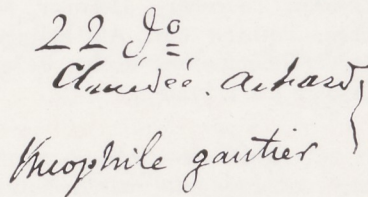 22 do
Amédée. achard
Theophile gautier